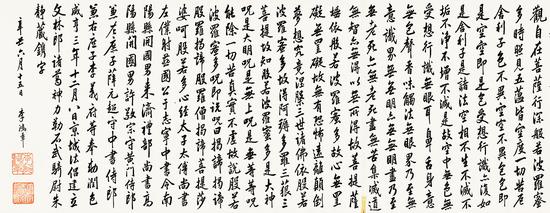 觀自在菩薩行深般若波羅蜜
多時照見五蘊皆空度一切苦厄
舍利子色不異空空不異色色即
是空空即是色受想行識亦復如
是舍利子是諸法空相不生不滅不
垢不淨不增不減是故空中無色無
受想行識無眼耳鼻舌身意
無色聲香味觸法無眼界乃至無
意識界無無明亦無無明盡乃至
無老死亦無老死盡無苦集滅道
無智亦無得以無所得故菩提薩
埵依般若波羅蜜多故心無罣
礙無罣礙故無有恐怖遠離顛倒
夢想究竟涅槃三世諸佛依般若
波羅蜜多故得阿耨多羅三藐三
菩提故知般若波羅蜜多是大神
咒是大明咒是無上咒是無等等咒
能除一切苦真實不虛故說般若
波羅蜜多咒即說咒曰揭諦揭諦
般羅揭諦般羅僧揭諦菩提莎
婆呵般若多心經太子太傅尚書
左僕射燕國公于志寧中書令南
陽縣開國男來濟禮部尚書高
陽縣開國男許敬宗守黃門侍郎
兼左庶子薛元超守中書侍郎
兼右庶子李義府等奉敕潤色
咸亨三年十二月八日京城法侶建立
文林郎諸葛神力勒石武騎尉朱
靜藏鐫字
辛丑六月十五日 李鴻